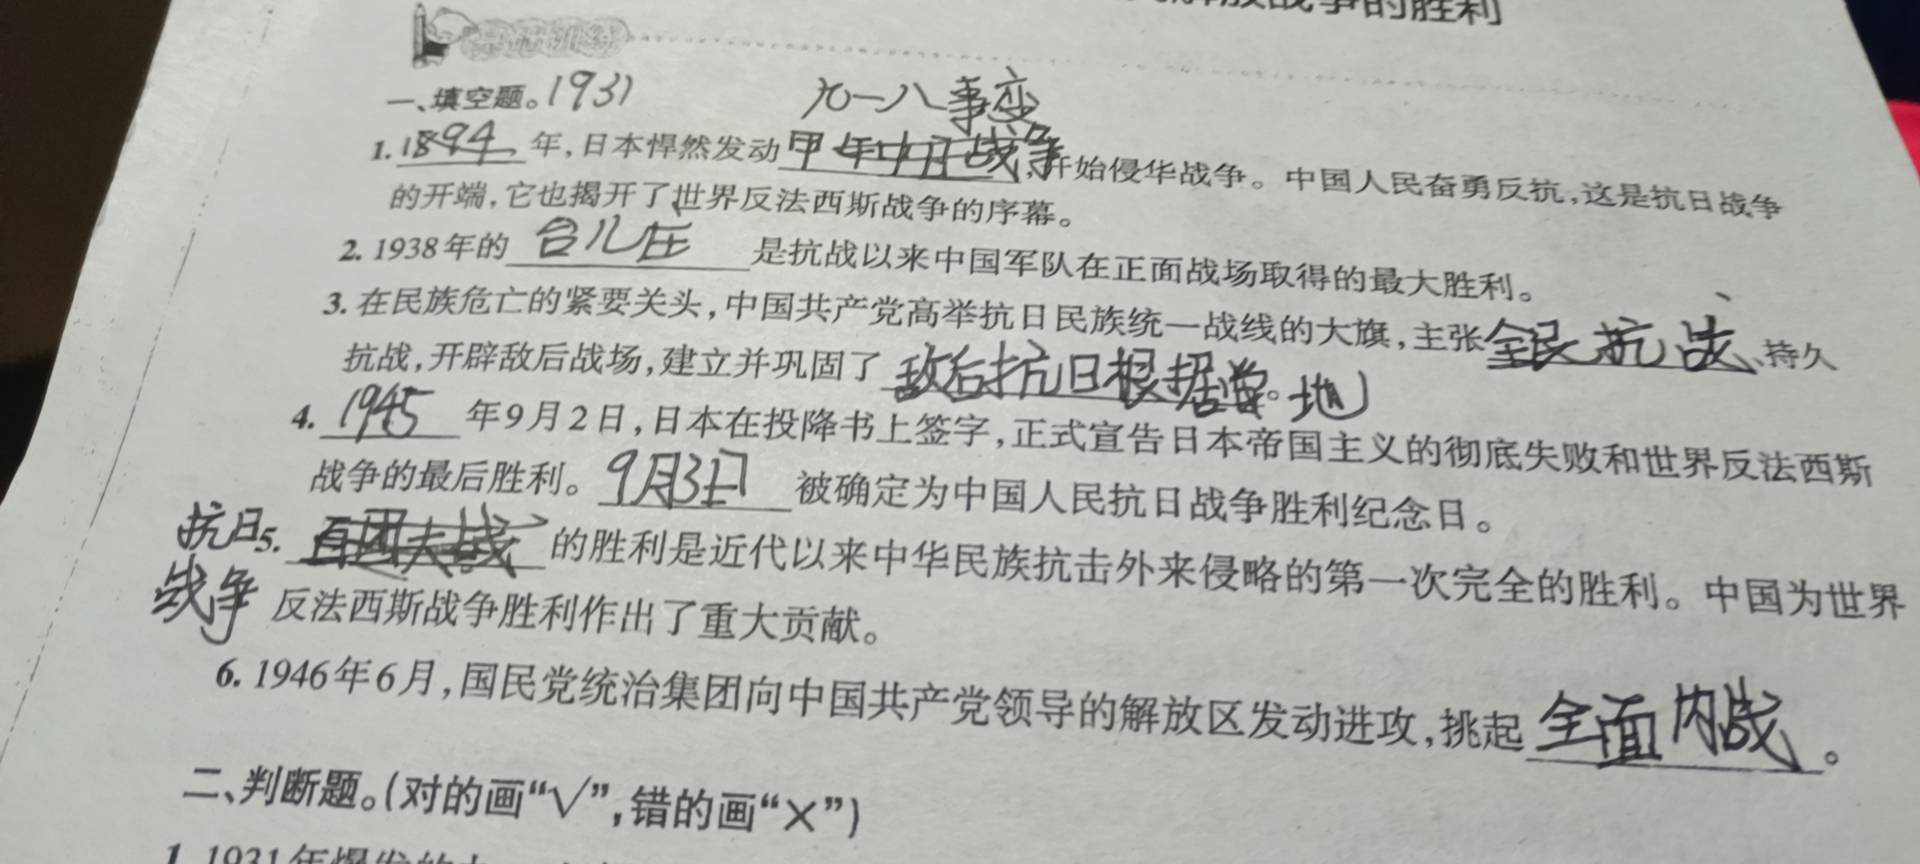 的胜利
一、填空题。1931 九一八事变
1. 1894 年,日本悍然发动 甲午中日战争,开始侵华战争。中国人民奋勇反抗,这是抗日战争
的开端,它也揭开了世界反法西斯战争的序幕。
2. 1938年的 台儿庄 是抗战以来中国军队在正面战场取得的最大胜利。
3. 在民族危亡的紧要关头,中国共产党高举抗日民族统一战线的大旗,主张全民抗战、持久
抗战,开辟敌后战场,建立并巩固了 敌后抗日根据地。
4. 1945 年9月2日,日本在投降书上签字,正式宣告日本帝国主义的彻底失败和世界反法西斯
战争的最后胜利。9月3日 被确定为中国人民抗日战争胜利纪念日。
抗日 5. 百团大战 的胜利是近代以来中华民族抗击外来侵略的第一次完全的胜利。中国为世界
战争 反法西斯战争胜利作出了重大贡献。
6. 1946年6月,国民党统治集团向中国共产党领导的解放区发动进攻,挑起 全面内战。
二、判断题。(对的画“√”,错的画“×”)
1. 1931年爆发的